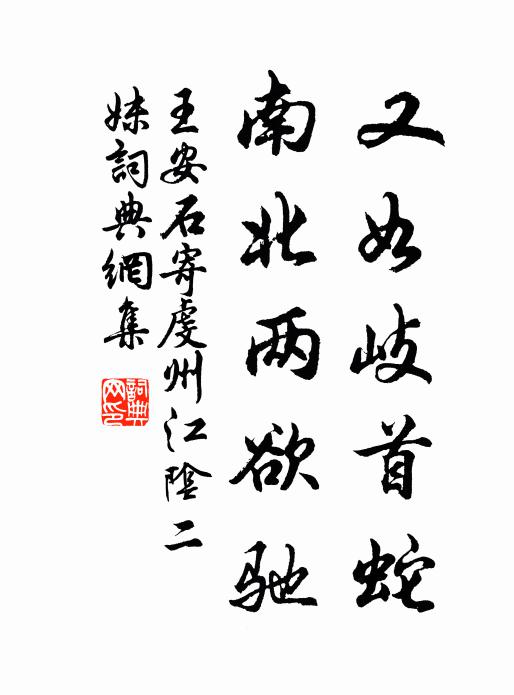 又如岐首蛇
南北两欲驰
王安石寄虔州江陰二
妹詞典網集
詞典
网印